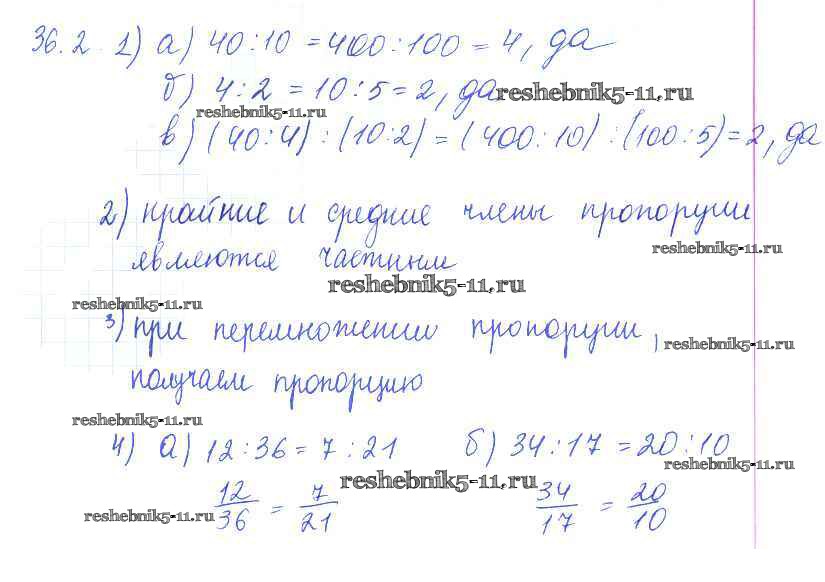 36.2 1) а) 40:10 = 400:100 = 4, да
б) 4:2 = 10:5 = 2, да reshebnik5-11.ru
reshebnik5-11.ru
в) (40:4) : (10:2) = (400:10) : (100:5) = 2, да
2) крайние и средние члены пропорции
reshebnik5-11.ru
являются частным
reshebnik5-11.ru
reshebnik5-11.ru
3) при перемножении пропорции,
reshebnik5-11.ru
получаем пропорцию
reshebnik5-11.ru
4) а) 12:36 = 7:21 б) 34:17 = 20:10
reshebnik5-11.ru
reshebnik5-11.ru
12/36 = 7/21 34/17 = 20/10
reshebnik5-11.ru